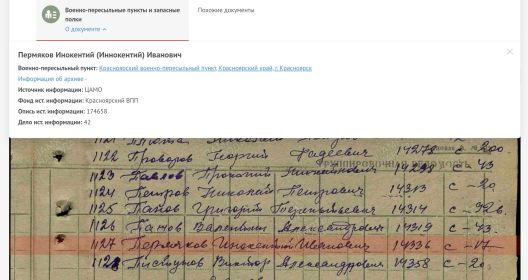 Военно-пересыльные пункты и запасные полки
О документе
Похожие документы
Пермяков Инокентий (Иннокентий) Иванович
Военно-пересыльный пункт: Красноярский военно-пересыльный пункт, Красноярский край, г. Красноярск
Информация об архиве -
Источник информации: ЦАМО
Фонд ист. информации: Красноярский ВПП
Опись ист. информации: 174658
Дело ист. информации: 42
1122 Проворов Георгий Фадеевич 14273 с - 200
1123 Павлов Прокопий 14298 с - 43
1124 Петров Николай Петрович 14313 с - 20.
1125 Панов Григорий Терентьевич 14314 с - 426.
1126 Панов Валентин Александрович 14319 с - 43.
1127 Пермяков Инокентий Иванович 14336 с - 17
1128 Пистунов Виктор Александрович 14358 с - 20.